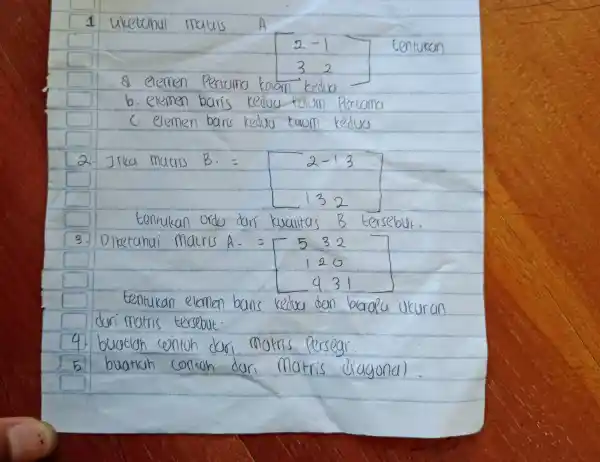 1 Diketahui matriks A
2 -1 tentukan
3 2
a elemen Pertama kolom kedua
b. elemen baris kedua kolom Pertama
c elemen baris kedua kolom kedua
2. Jika matris B. =
2 -1 3
1 3 2
tentukan ordo dari kualitas B tersebut.
3. Diketahui matris A. = 5 3 2
1 2 0
4 3 1
tentukan elemen baris kedua dan berapa ukuran
dari matris tersebut.
4. buatlah contoh dari matris Persegi
5 buatlah contoh dari Matris diagonal.